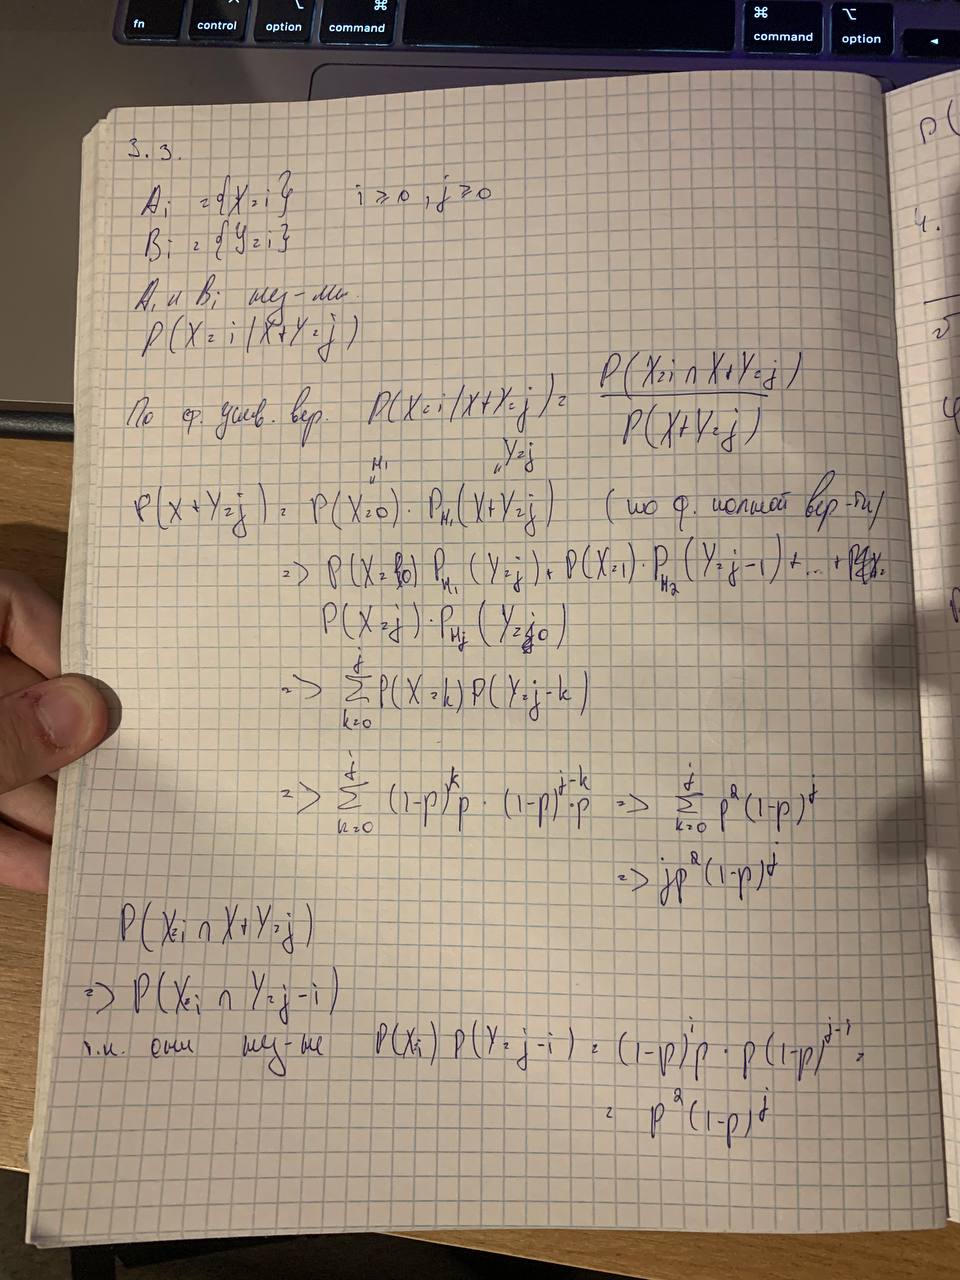 fn control option ⌘ command ⌘ command ⌥ option ◄
3.3.
Aᵢ = {X=i} i ≥ 0, j ≥ 0
Bᵢ = {Y=i}
Aᵢ и Bᵢ нез-мы
P(X=i/X+Y=j)
По ф. услов. вер. P(X=i/X+Y=j) = P(X=i ∩ X+Y=j) / P(X+Y=j)
H₁ Y=j
P(X+Y=j) = P(X=0) · P_H₁(X+Y=j) (по ф. полной вер-ти)
=> P(X=0) P_H₁(Y=j) + P(X=1) · P_H₂(Y=j-1) + ... +
P(X=j) · P_Hⱼ(Y=0)
=> Σ_{k=0}^{j} P(X=k) P(Y=j-k)
=> Σ_{k=0}^{j} (1-p)^k p · (1-p)^{j-k} · p => Σ_{k=0}^{j} p²(1-p)^j
=> jp²(1-p)^j
P(X=i ∩ X+Y=j)
=> P(X=i ∩ Y=j-i)
т.к. они нез-мы P(X=i) P(Y=j-i) = (1-p)^i p · p(1-p)^{j-i} =
= p²(1-p)^j
P(
4.